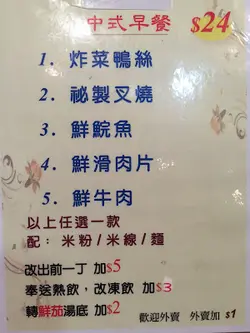 中式早餐 $24
1. 炸菜鴨絲
2. 祕製叉燒
3. 鮮鯇魚
4. 鮮滑肉片
5. 鮮牛肉
以上任選一款
配: 米粉/米線/麵
改出前一丁 加$5
奉送熱飲，改凍飲 加$3
轉鮮茄湯底 加$2
歡迎外賣 外賣加 $1